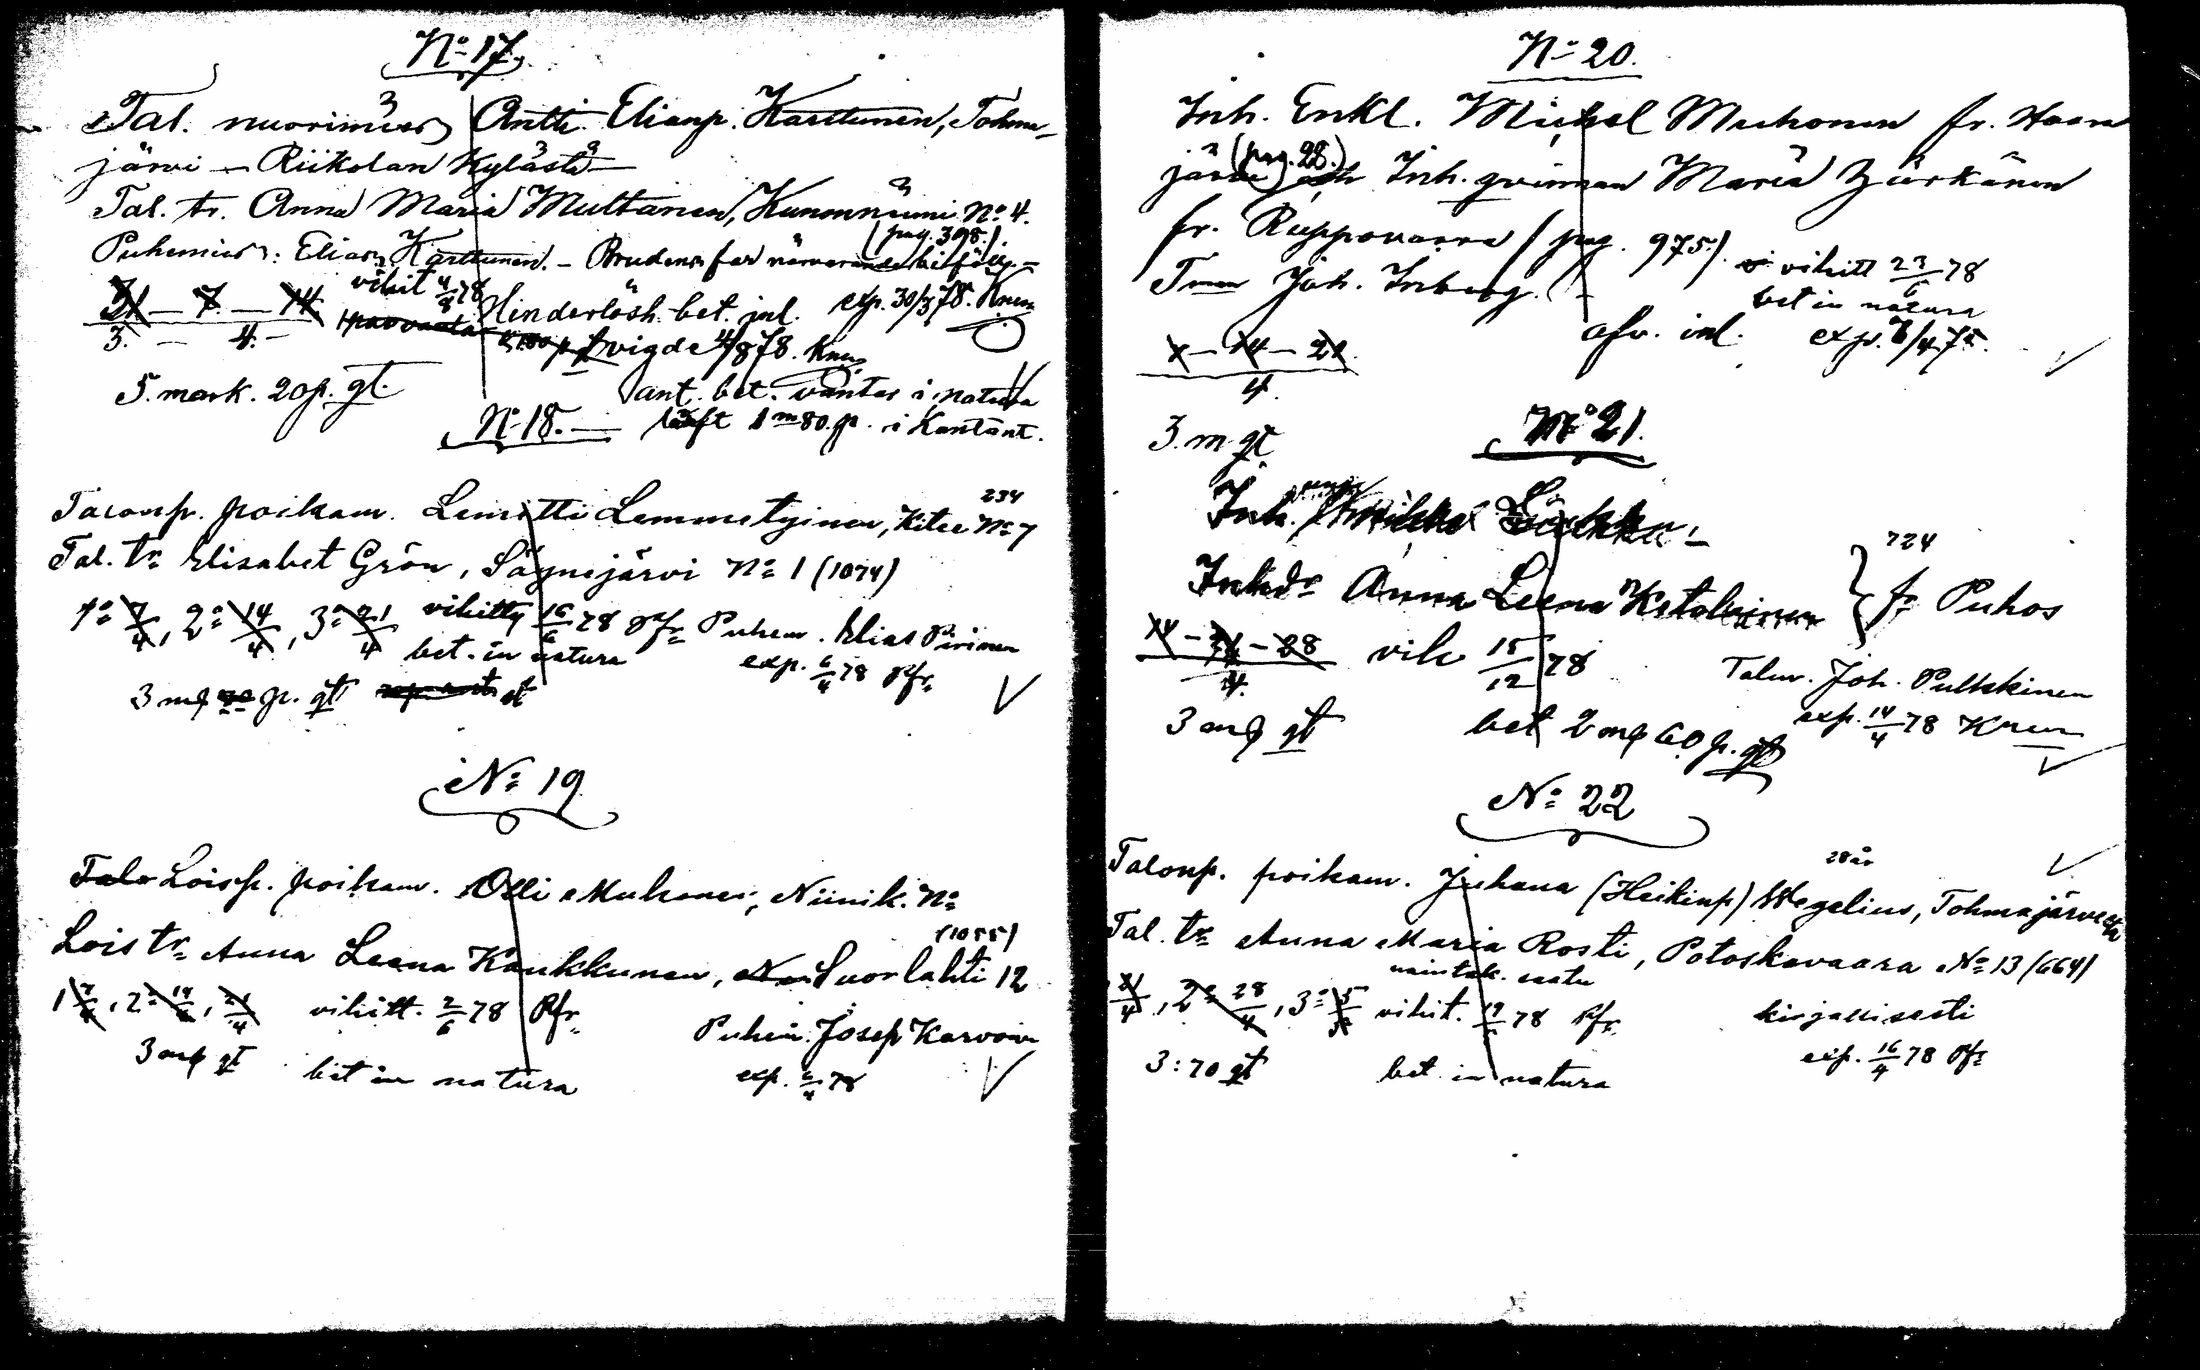 No 17
Tal. nuorimies Antti Elianp. Karttunen, Tohma-
järvi - Riikolan kylästä
Tal. tr. Anna Maria Multanen, Kunonniemi No 4.
(pag. 398.)
Puhemies: Elias Karttunen. - Brudens far närvarande biföll. -
vihit 4/8 78
31 - 7. - 14. Hinderlösh. bet. inl. exp. 30/3 78.
3. - 4. - vigde 4/8 78.
5. mark. 20 p. gt. ant. bet. väntas i natura
No 18. - 1 m 80. p. i Kontant.
234
Talonp. poikam. Lemetti Lemmetyinen, Kitee No 7
Tal. tr. Elisabet Grön, Säynejärvi No 1 (1074)
1o 7/4, 2o 14/4, 3o 21/4 vihitty 16/6 78 Puhem. Elias Pirinen
bet. in natura exp. 6/4 78
3 mq p. gt
No 19
Talo Loisp. poikam. Olli Muhonen, Niinik. No
(1055)
Lois tr. Anna Leena Kaukkunen, Suorlahti 12
1 7/4, 2o 14/4, 21/4 vihitt. 2/6 78 Puhem. Josep Karvonen
3 mq gt bet in natura exp. 6/4 78
No 20.
Inh. Enkl. Mickel Muhonen fr. Haara
järvi (pag. 98.) och Inh. qvinnan Maria Hürkänen
fr. Ruppovaara (pag. 975.)
vihitt 23/6 78
Joh. Inberg. bet in natura
7 - 14 - 21. afv. inl. exp. 3/4 78.
4.
3. m gt
No 21.
Inh.
724
Inhdr Anna Leena Ketolainen } fr Puhos
14 - 21 - 28 vih 15/12 78 Talm. Joh. Pulkkinen
4.
3 mq gt bet 2 mq 60 p. gt exp. 14/4 78
No 22
28 år
Talonp. poikam. Juhana (Heikinp) Wegelius, Tohmajärveltä
Tal. tr. Anna Maria Rosti, Potoskavaara No 13 (664)
21/4, 2o 28/4, 3o 5/5 vihit. 19/5 78 kirjallisesti
3:70 gt bet in natura exp. 16/4 78